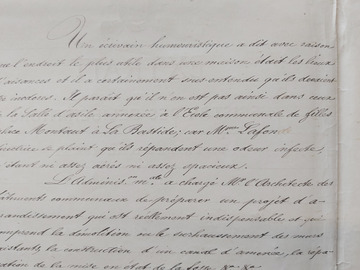 Un écrivain humouristique a dit avec raison
que l'endroit le plus utile dans une maison était les lieux
d'aisances et il a certainement sous entendu qu'ils devaient
être inodores. Il paraît qu'il n'en est pas ainsi dans ceux
de la Salle d'asile annexée à l'École communale de filles
place Montaut à La Bastide; car Mme Lafond
directrice se plaint qu'ils répandent une odeur infecte,
dont ni assez aérés ni assez spacieux.
L'Adminis. m.ale a chargé Mr l'Architecte des
bâtiments communaux de préparer un projet d'a-
grandissement qui est réellement indispensable et qui
comprend la démolition ou le surhaussement des murs
existants, la construction d'un canal d'amenée, la répa-
ration de la mise en état de la fosse &a &a